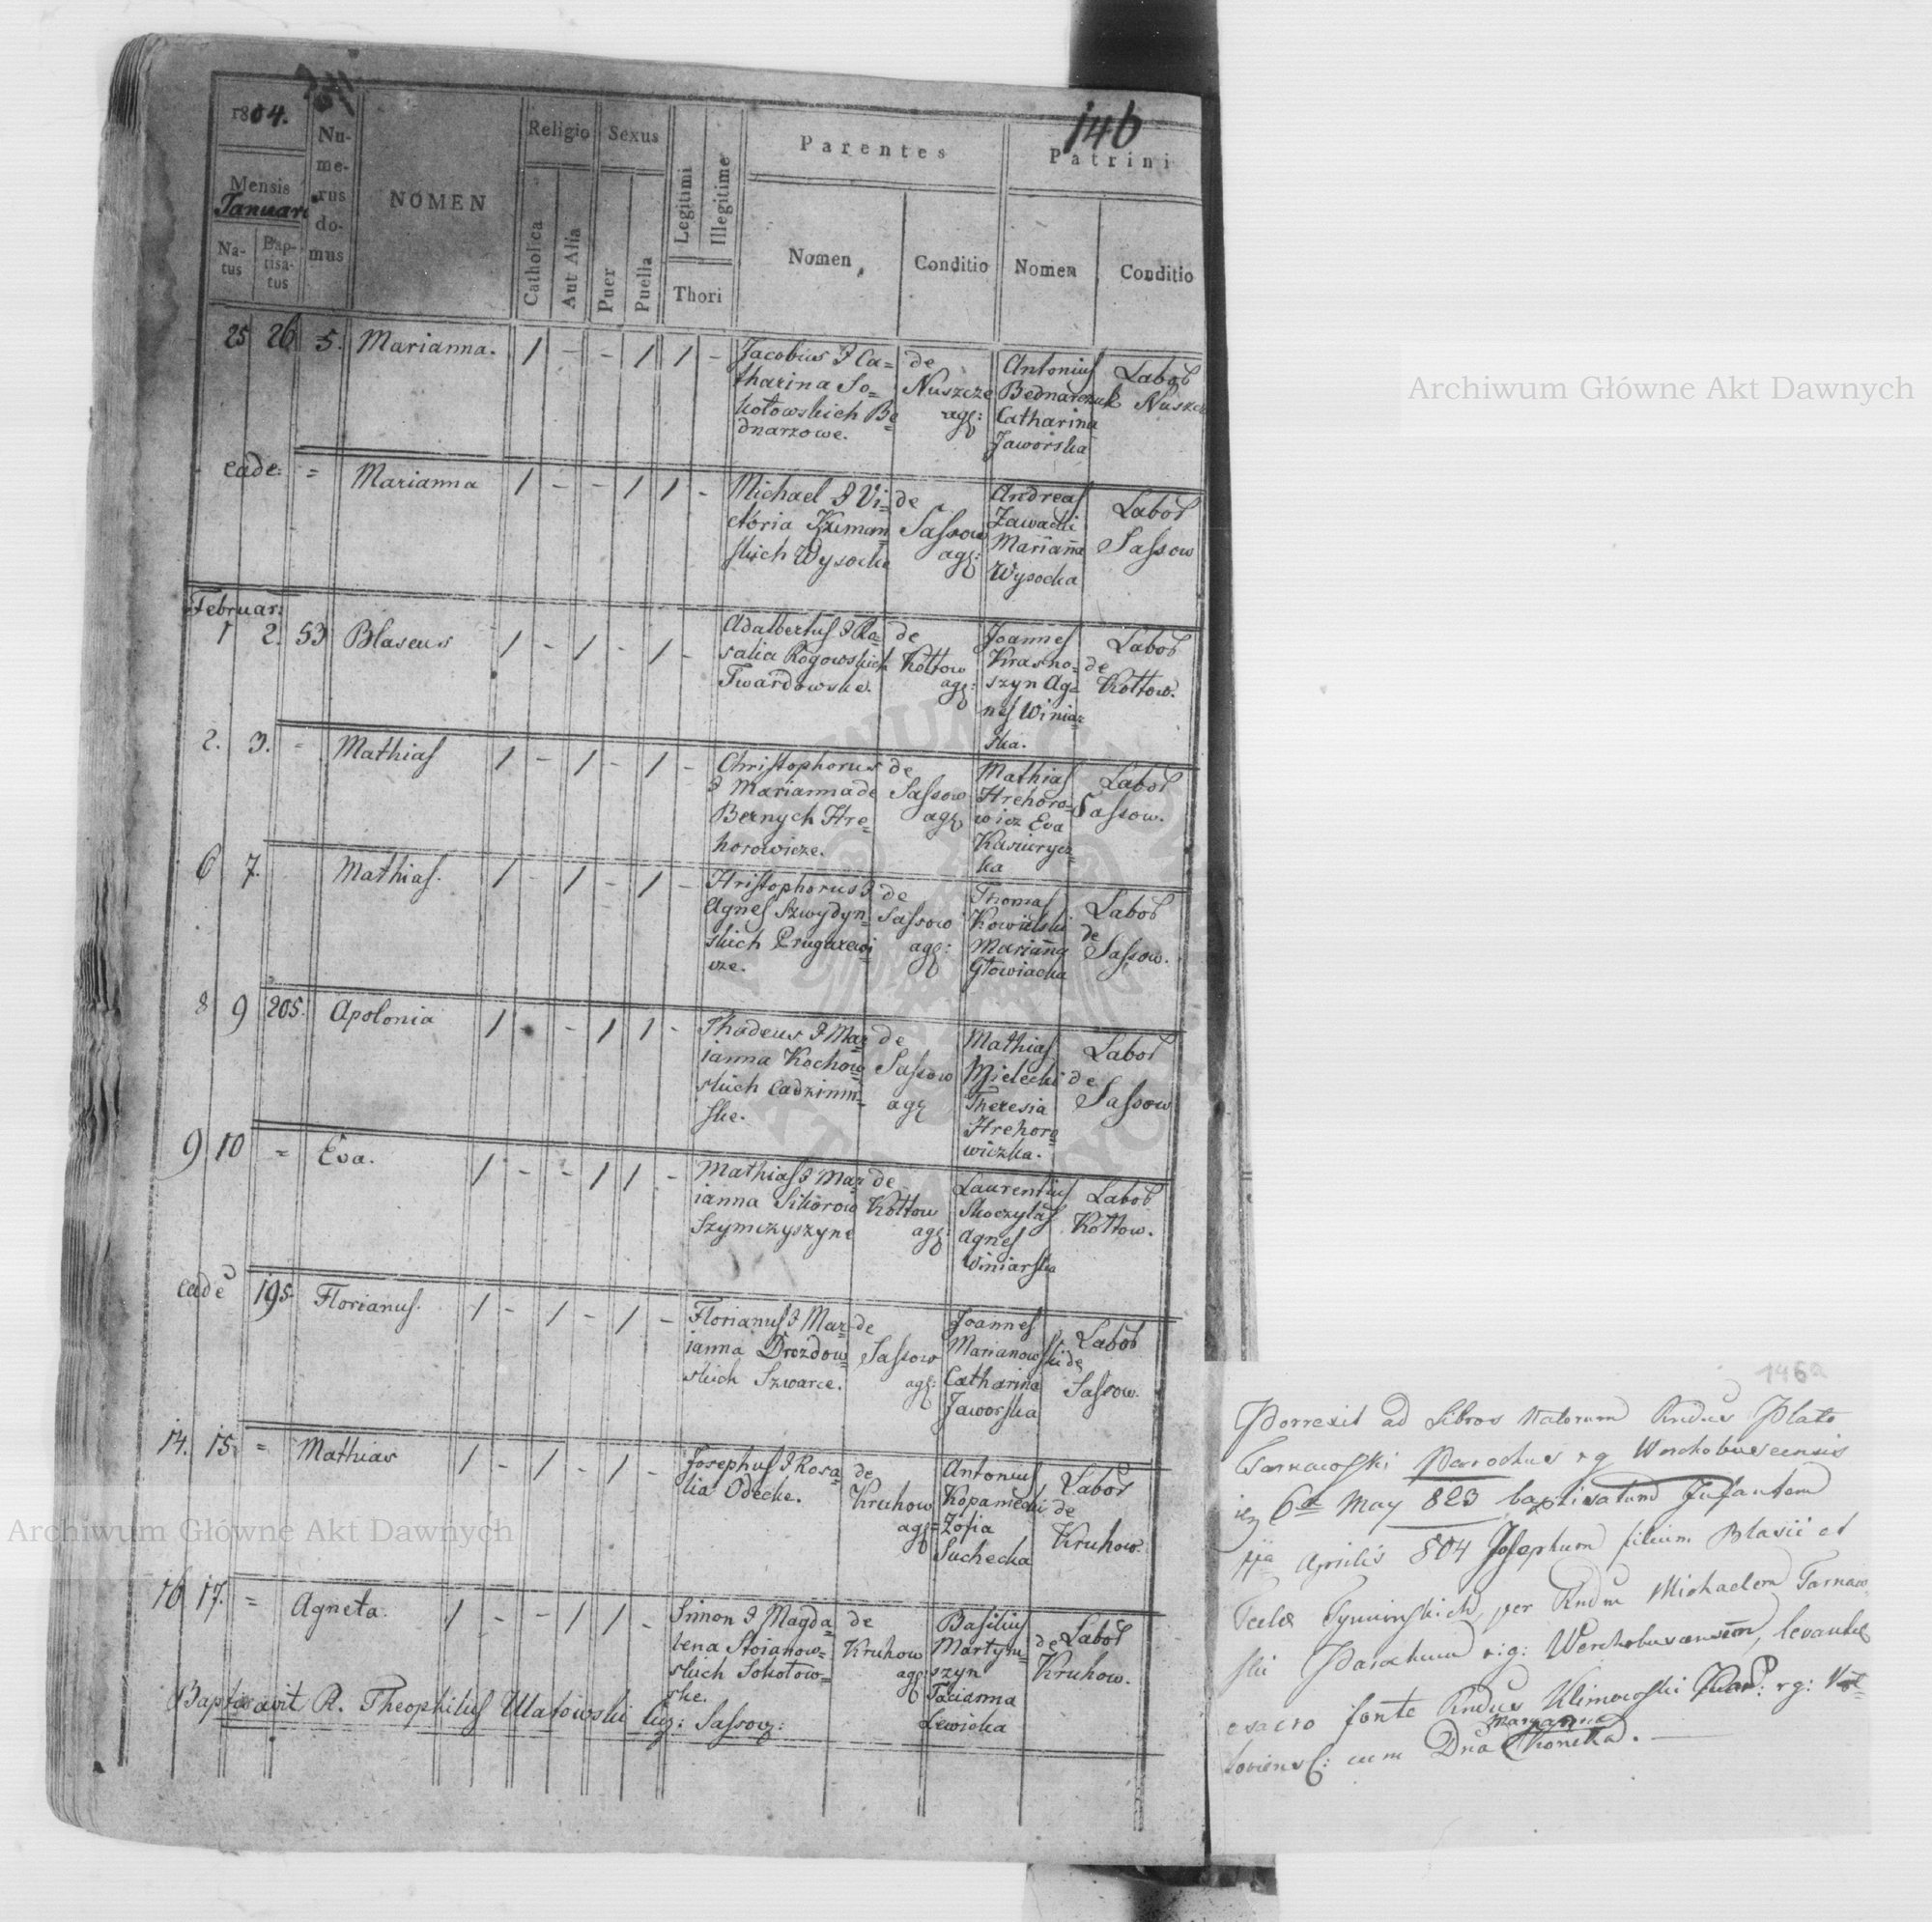 146
1804.
Mensis
Januar.
Na-
tus
Bap-
tisa-
tus
Nu-
me-
rus
do-
mus
NOMEN
Religio
Catholica
Aut Alia
Sexus
Puer
Puella
Legitimi
Illegitime
Thori
Parentes
Nomen
Conditio
Patrini
Nomen
Conditio
25 26 5. Marianna. / - - / / -
Jacobus & Ca=
tharina So=
kołowskich Be
dnarzowe.
de
Nuszcze
agr:
Antonius
Bednarczuk
Catharina
Jaworska
Labor
Nuszcze
eade: = Marianna / - - / / -
Michael & Vi=
ctoria
skich Wysocke
de
Sassow
agr:
Andreas
Zawadki
Marianna
Wysocka
Labor
Sassow
Februar:
1 2. 53 Blaseus / - / - / -
Adalbertus & Ro=
salia Rogowskich
Twardowske.
de
Kołtow
agr:
Joannes
Krasno=
szyn Ag=
nes Winiar
ska.
Labor
de
Kołtow.
2. 3. = Mathias / - / - / -
Christophorus
& Marianna de
Bernych Hre=
horowicze.
de
Sassow
agr
Mathias
Hrehoro=
wicz Eva
ka
Labor
Sassow.
6 7. Mathias. / - / - / -
Hristophorus &
Agnes Szwydyn=
skich
cze.
de
Sassow
agr:
Thomas
Kowalski
Marianna
Głowiacka
Labor
de
Sassow.
8 9 205. Apolonia / - - / / -
Thadeus & Mar
ianna Kochow
skich
ske.
de
Sassow
agr
Mathias
Mielecki
Theresia
Hrehoro
wiczka.
Labor
de
Sassow
9 10 = Eva. / - - / / -
Mathias & Mar
ianna Sikorow
Szymczyszyne
de
Kołtow
agr:
Laurentius
Skoczylas
Agnes
Winiarska
Labor
Kołtow.
eade 195. Florianus. / - / - / -
Florianus & Mar=
ianna Drozdow=
skich Szwarce.
de
Sassow
agr:
Joannes
Marianowski
Catharina
Jaworska
Labor
de
Sassow.
14. 15. = Mathias / - / - / -
Josephus & Rosa=
lia Odecke.
de
Kruhow
agr=
Antonius
Kopaniecki
Zofia
Suchecka
Labor
de
Kruhow.
16 17. = Agneta. / - - / / -
Simon & Magda=
lena Stoianow=
skich Sokołow=
ske.
de
Kruhow
agr:
Basilius
Martyni=
szyn
Tacianna
Lewicka
de Labor
Kruhow.
Baptisavit R. Theophilus Ulatowski Sassow:
146a
Porrexit ad Libros Natorum Rndus Plato
Tarnawski Parochus rg Werchobuscensis
6ta May 823 baptisatum Infantem
Aprilis 804 Josephum filium Blasii et
Tyminskich, per Rndm Michaelem Tarnaw-
ski Parochum r:g: levantes
e sacro fonte Rndus Klimowski Par: rg:
cum Dna Marianna
Archiwum Główne Akt Dawnych
Archiwum Główne Akt Dawnych